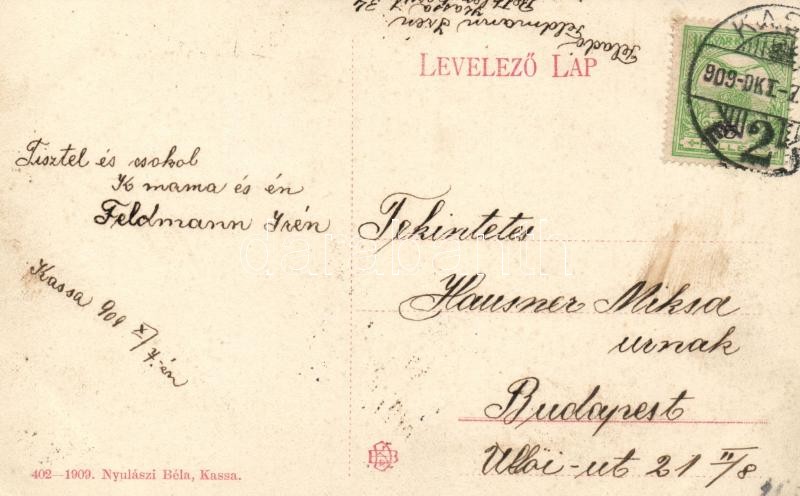 Feladó
Feldmann Irén
Kassa
LEVELEZŐ LAP
909-OKT-7
2
Tisztel és csokol
K mama és én
Feldmann Irén
Kassa 909 X/7.-én
Tekintetes
Hausner Miksa
urnak
Budapest
Üllöi-ut 21 II/8
402—1909. Nyulászi Béla, Kassa.